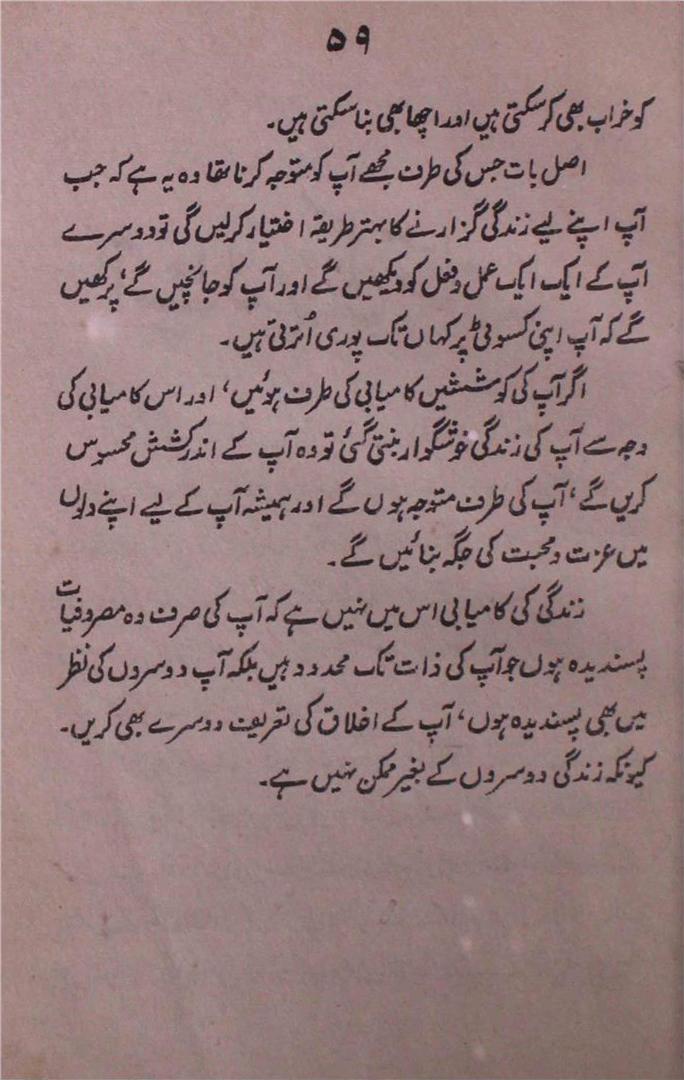 ۵۹
کو خراب بھی کر سکتی ہیں اور اچھا بھی بنا سکتی ہیں۔
اصل بات جس کی طرف مجھے آپ کو متوجہ کرنا تھا وہ یہ ہے کہ جب
آپ اپنے لیے زندگی گزارنے کا بہتر طریقہ اختیار کرلیں گی تو دوسرے
آپ کے ایک ایک عمل و فعل کو دیکھیں گے اور آپ کو جانچیں گے، پرکھیں
گے کہ آپ اپنی کسوٹی پر کہاں تک پوری اُترتی ہیں۔
اگر آپ کی کوششیں کامیابی کی طرف ہوئیں، اور اس کامیابی کی
وجہ سے آپ کی زندگی خوشگوار بنتی گئی تو وہ آپ کے اندر کشش محسوس
کریں گے، آپ کی طرف متوجہ ہوں گے اور ہمیشہ آپ کے لیے اپنے دلوں
میں عزت و محبت کی جگہ بنائیں گے۔
زندگی کی کامیابی اس میں نہیں ہے کہ آپ کی صرف وہ مصروفیات
پسندیدہ ہوں جو آپ کی ذات تک محدود ہیں بلکہ آپ دوسروں کی نظر
میں بھی پسندیدہ ہوں، آپ کے اخلاق کی تعریف دوسرے بھی کریں۔
کیونکہ زندگی دوسروں کے بغیر ممکن نہیں ہے۔